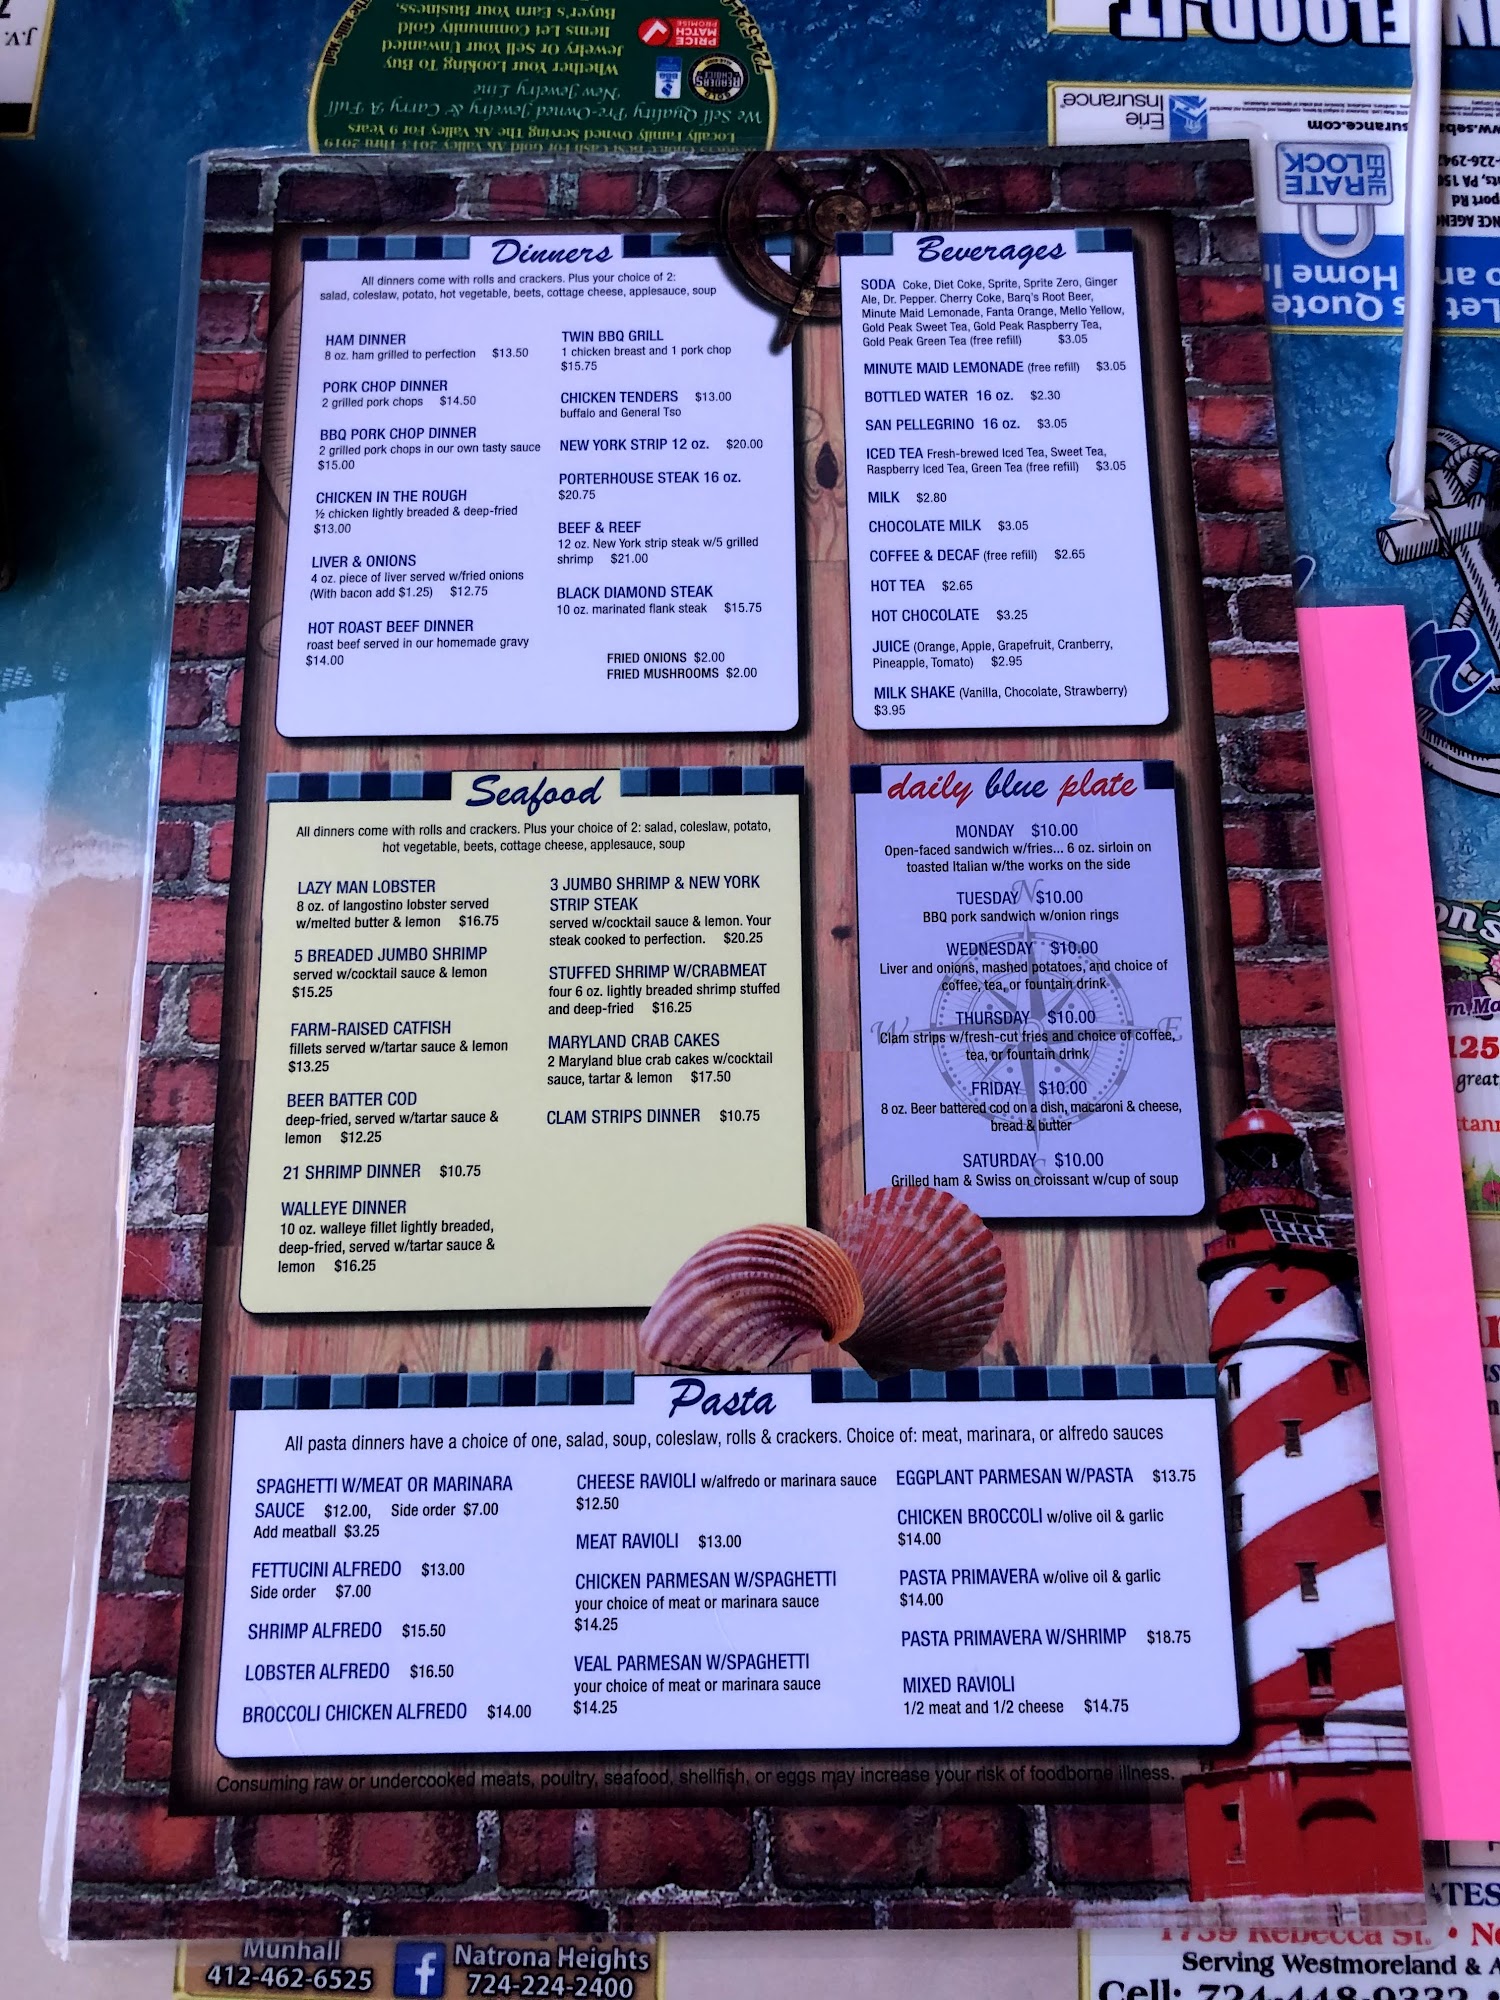 Dinners
All dinners come with rolls and crackers. Plus your choice of 2:
salad, coleslaw, potato, hot vegetable, beets, cottage cheese, applesauce, soup
HAM DINNER
8 oz. ham grilled to perfection $13.50
PORK CHOP DINNER
2 grilled pork chops $14.50
BBQ PORK CHOP DINNER
2 grilled pork chops in our own tasty sauce
$15.00
CHICKEN IN THE ROUGH
½ chicken lightly breaded & deep-fried
$13.00
LIVER & ONIONS
4 oz. piece of liver served w/fried onions
(With bacon add $1.25) $12.75
HOT ROAST BEEF DINNER
roast beef served in our homemade gravy
$14.00
TWIN BBQ GRILL
1 chicken breast and 1 pork chop
$15.75
CHICKEN TENDERS $13.00
buffalo and General Tso
NEW YORK STRIP 12 oz. $20.00
PORTERHOUSE STEAK 16 oz.
$20.75
BEEF & REEF
12 oz. New York strip steak w/5 grilled
shrimp $21.00
BLACK DIAMOND STEAK
10 oz. marinated flank steak $15.75
FRIED ONIONS $2.00
FRIED MUSHROOMS $2.00
Beverages
SODA Coke, Diet Coke, Sprite, Sprite Zero, Ginger
Ale, Dr. Pepper. Cherry Coke, Barq's Root Beer,
Minute Maid Lemonade, Fanta Orange, Mello Yellow,
Gold Peak Sweet Tea, Gold Peak Raspberry Tea,
Gold Peak Green Tea (free refill) $3.05
MINUTE MAID LEMONADE (free refill) $3.05
BOTTLED WATER 16 oz. $2.30
SAN PELLEGRINO 16 oz. $3.05
ICED TEA Fresh-brewed Iced Tea, Sweet Tea,
Raspberry Iced Tea, Green Tea (free refill) $3.05
MILK $2.80
CHOCOLATE MILK $3.05
COFFEE & DECAF (free refill) $2.65
HOT TEA $2.65
HOT CHOCOLATE $3.25
JUICE (Orange, Apple, Grapefruit, Cranberry,
Pineapple, Tomato) $2.95
MILK SHAKE (Vanilla, Chocolate, Strawberry)
$3.95
Seafood
All dinners come with rolls and crackers. Plus your choice of 2: salad, coleslaw, potato,
hot vegetable, beets, cottage cheese, applesauce, soup
LAZY MAN LOBSTER
8 oz. of langostino lobster served
w/melted butter & lemon $16.75
5 BREADED JUMBO SHRIMP
served w/cocktail sauce & lemon
$15.25
FARM-RAISED CATFISH
fillets served w/tartar sauce & lemon
$13.25
BEER BATTER COD
deep-fried, served w/tartar sauce &
lemon $12.25
21 SHRIMP DINNER $10.75
WALLEYE DINNER
10 oz. walleye fillet lightly breaded,
deep-fried, served w/tartar sauce &
lemon $16.25
3 JUMBO SHRIMP & NEW YORK
STRIP STEAK
served w/cocktail sauce & lemon. Your
steak cooked to perfection. $20.25
STUFFED SHRIMP W/CRABMEAT
four 6 oz. lightly breaded shrimp stuffed
and deep-fried $16.25
MARYLAND CRAB CAKES
2 Maryland blue crab cakes w/cocktail
sauce, tartar & lemon $17.50
CLAM STRIPS DINNER $10.75
daily blue plate
MONDAY $10.00
Open-faced sandwich w/fries... 6 oz. sirloin on
toasted Italian w/the works on the side
TUESDAY $10.00
BBQ pork sandwich w/onion rings
WEDNESDAY $10.00
Liver and onions, mashed potatoes, and choice of
coffee, tea, or fountain drink
THURSDAY $10.00
Clam strips w/fresh-cut fries and choice of coffee,
tea, or fountain drink
FRIDAY $10.00
8 oz. Beer battered cod on a dish, macaroni & cheese,
bread & butter
SATURDAY $10.00
Grilled ham & Swiss on croissant w/cup of soup
N
W
E
S
Pasta
All pasta dinners have a choice of one, salad, soup, coleslaw, rolls & crackers. Choice of: meat, marinara, or alfredo sauces
SPAGHETTI W/MEAT OR MARINARA
SAUCE $12.00, Side order $7.00
Add meatball $3.25
FETTUCINI ALFREDO $13.00
Side order $7.00
SHRIMP ALFREDO $15.50
LOBSTER ALFREDO $16.50
BROCCOLI CHICKEN ALFREDO $14.00
CHEESE RAVIOLI w/alfredo or marinara sauce
$12.50
MEAT RAVIOLI $13.00
CHICKEN PARMESAN W/SPAGHETTI
your choice of meat or marinara sauce
$14.25
VEAL PARMESAN W/SPAGHETTI
your choice of meat or marinara sauce
$14.25
EGGPLANT PARMESAN W/PASTA $13.75
CHICKEN BROCCOLI w/olive oil & garlic
$14.00
PASTA PRIMAVERA w/olive oil & garlic
$14.00
PASTA PRIMAVERA W/SHRIMP $18.75
MIXED RAVIOLI
1/2 meat and 1/2 cheese $14.75
Consuming raw or undercooked meats, poultry, seafood, shellfish, or eggs may increase your risk of foodborne illness.
Locally Family Owned Serving The Ak Valley For 9 Years
We Sell Quality Pre-Owned Jewelry & Carry A Full
New Jewelry Line
Whether Your Looking To Buy
Jewelry Or Sell Your Unwanted
Items Let Community Gold
Buyer's Earn Your Business.
PRICE
MATCH
PROMISE
Erie
Insurance
ERIE
RATE
LOCK
Munhall
412-462-6525
f
Natrona Heights
724-224-2400
1739 Rebecca St.
Serving Westmoreland &
Cell: 724-448-9332